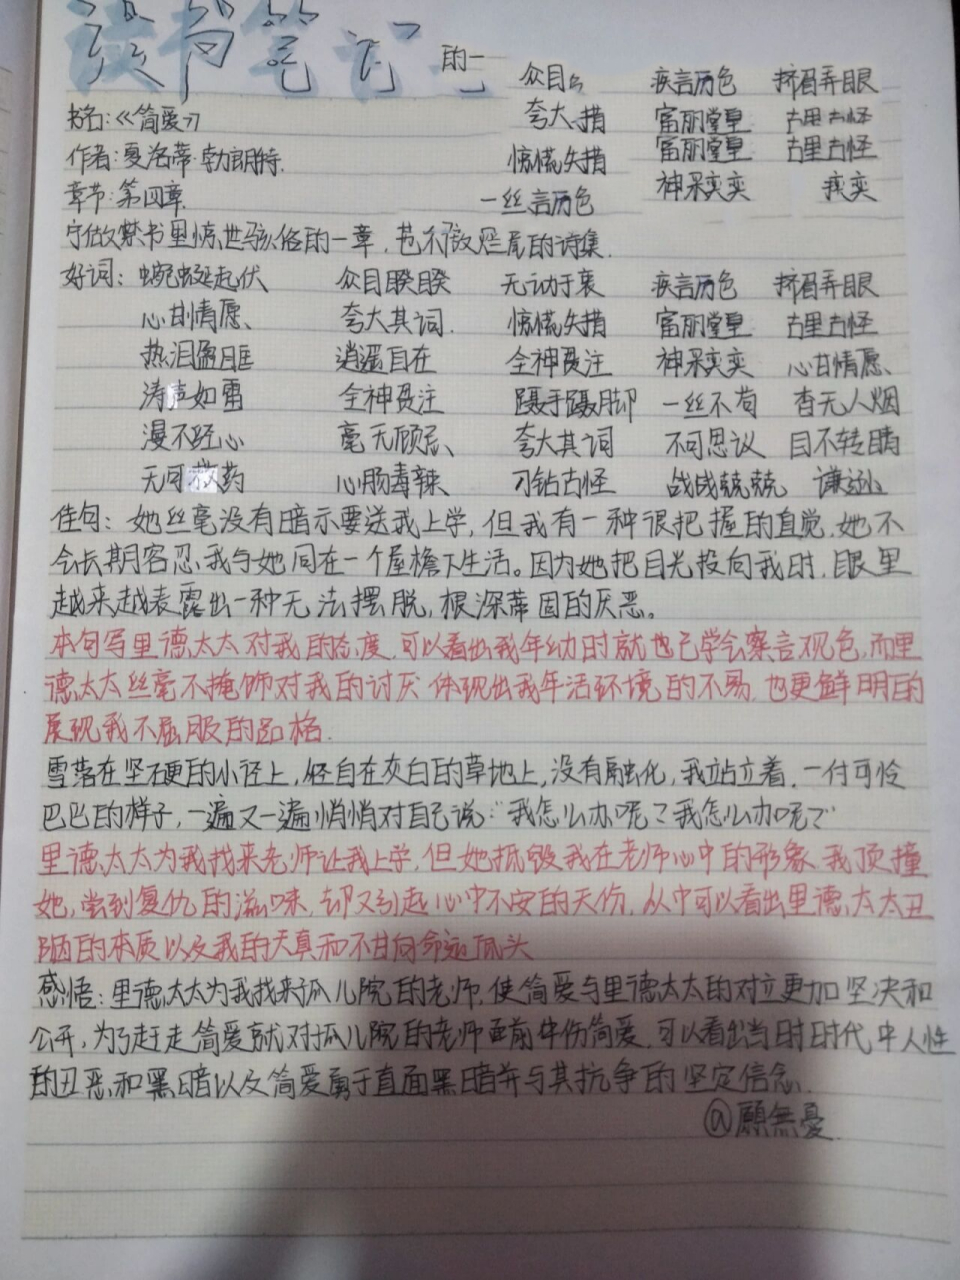 读书笔记
的一
众目 疾言历色 挤眉弄眼
书名:《简爱》 夸大 措 富丽堂皇 古里古怪
富丽堂皇 古里古怪
作者:夏洛蒂·勃朗特. 惊慌失措
神采奕奕 奕
章节:第四章. 一丝言历色
宁做禁书里惊世骇俗的一章,也不做烂尾的诗集.
好词:蜿蜒起伏 众目睽睽 无动于衷 疾言历色 挤眉弄眼
心甘情愿、 夸大其词. 惊慌失措 富丽堂皇 古里古怪
热泪盈眶 逍遥自在 全神贯注 神采奕奕 心甘情愿、
涛声如雷 全神贯注 蹑手蹑脚 一丝不苟 杳无人烟
漫不经心 毫无顾忌、 夸大其词 不可思议 目不转睛
无可救药 心肠毒辣 刁钻古怪 战战兢兢 谦逊
佳句:她丝毫没有暗示要送我上学,但我有一种很把握的直觉,她不
会长期容忍我与她同在一个屋檐下生活。因为她把目光投向我时,眼里
越来越表露出一种无法摆脱,根深蒂固的厌恶。
本句写里德太太对我的态度,可以看出我年幼时就也已学会察言观色,而里
德太太丝毫不掩饰对我的讨厌 体现出我年活环境的不易,也更鲜明的
展现我不屈服的品格.
雪落在坚硬的小径上,径自在灰白的草地上,没有融化,我站立着,一付可怜
巴巴的样子,一遍又一遍悄悄对自己说:“我怎么办呢?我怎么办呢?”
里德太太为我找来老师让我上学,但她抵毁我在老师心中的形象,我顶撞
她,尝到复仇的滋味,却又引起心中不安的天伤,从中可以看出里德太太丑
陋的本质以及我的天真和不甘向命运低头
感悟:里德太太为我找来孤儿院的老师,使简爱与里德太太的对立更加坚决和
公开,为了赶走简爱就对孤儿院的老师面前中伤简爱,可以看出当时时代中人性
的丑恶和黑暗以及简爱勇于直面黑暗并与其抗争的坚定信念.
@顾無憂